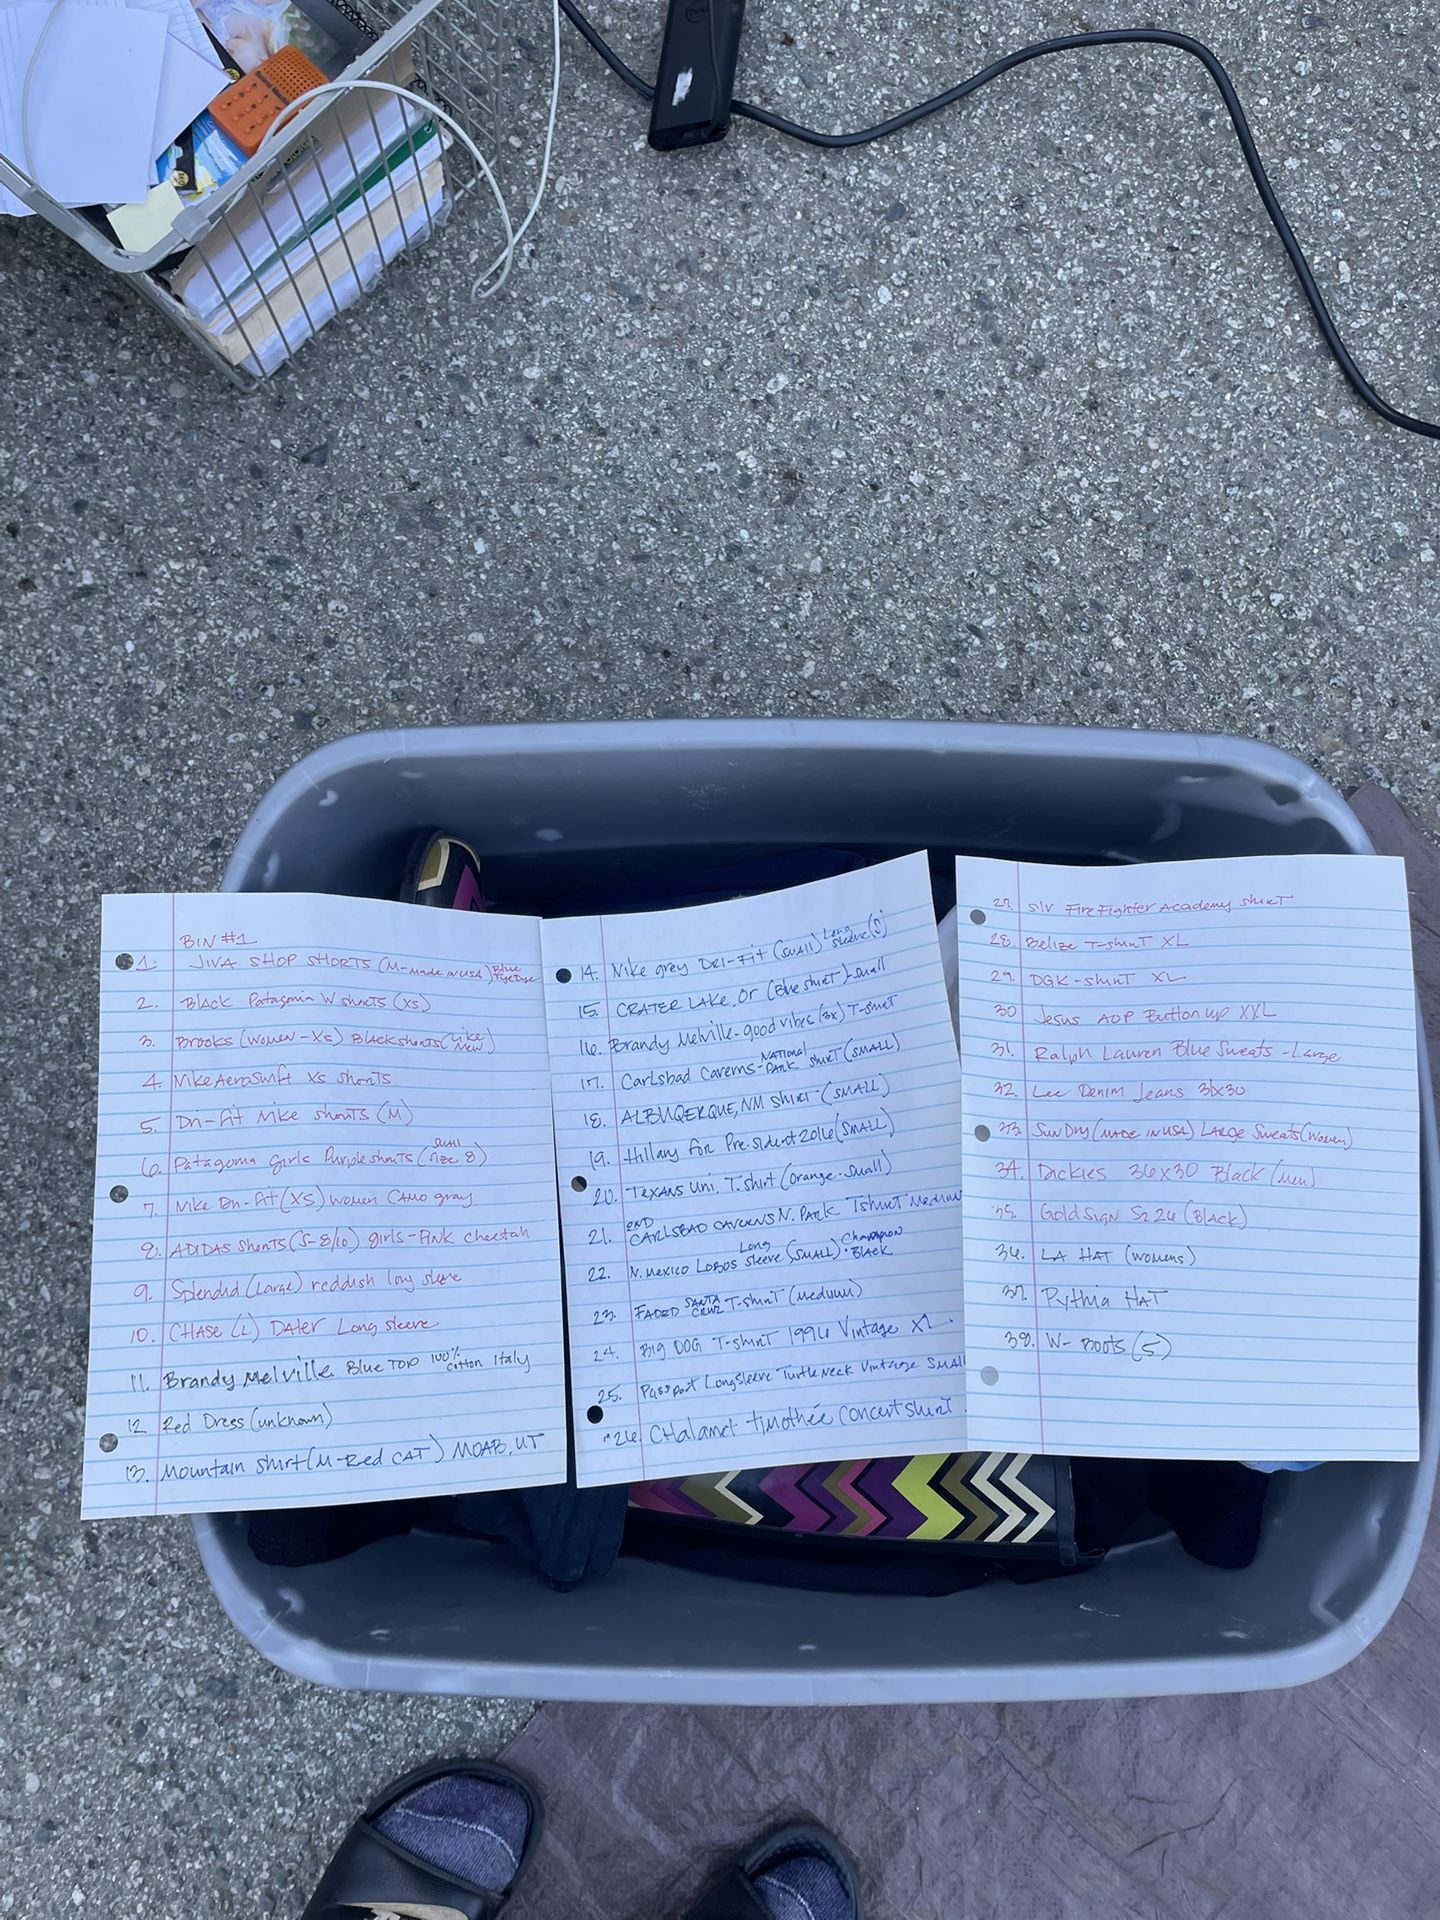 BIN #1
1. JIVA SHOP SHORTS (M-made in USA) Blue Tye Dye
2. Black Patagonia W shorts (XS)
3. Brooks (women-XS) Black shorts (Like New)
4. Nike AeroSwift XS shorts
5. Dri-fit Nike shorts (M)
6. Patagonia Girls Purple shorts (small size 8)
7. Nike Dri-fit (XS) women CAMO gray
8. ADIDAS shorts (S-8/10) girls-Pink cheetah
9. Splendid (Large) reddish long sleeve
10. CHASE (L) DATER Long sleeve
11. Brandy Melville Blue TOP 100% cotton Italy
12 Red Dress (unknown)
13. Mountain shirt (M-Red CAT) MOAB, UT
14. Nike grey DRI-Fit (SMALL) Long sleeve (S)
15. CRATER LAKE, Or (Blue shirt)-small
16. Brandy Melville-good vibes (3x) T-shirt
17. Carlsbad Caverns-NATIONAL PARK shirt (SMALL)
18. ALBUQERQUE, NM SHIRT-(SMALL)
19. Hillary for President 2016 (SMALL)
20. TEXANS Uni. T.shirt (orange-small)
21. 2ND CARLSBAD CAVERNS N. PARK Tshirt Medium
22. N. MEXICO LOBOS Long sleeve (SMALL)·Champion BLACK
23. FADED SANTA CRUZ T-shirt (medium)
24. BIG DOG T-shirt 1994 Vintage XL
25. Passport Longsleeve Turtle Neck Vintage SMALL
26. CHalamet timothée concert shirt
27. SLV FireFighter Academy shirt
28. Belize T-shirt XL
29. DGK-shirt XL
30 Jesus AOP Button up XXL
31. Ralph Lauren Blue Sweats-Large
32. Lee Denim Jeans 31x30
33. SUNDRY (MADE IN USA) LARGE Sweats (women)
34. Dickies 36x30 Black (Men)
35. Gold Sign Sz 26 (BLACK)
36. LA HAT (womens)
37. Pythia HAT
38. W-Boots (5)